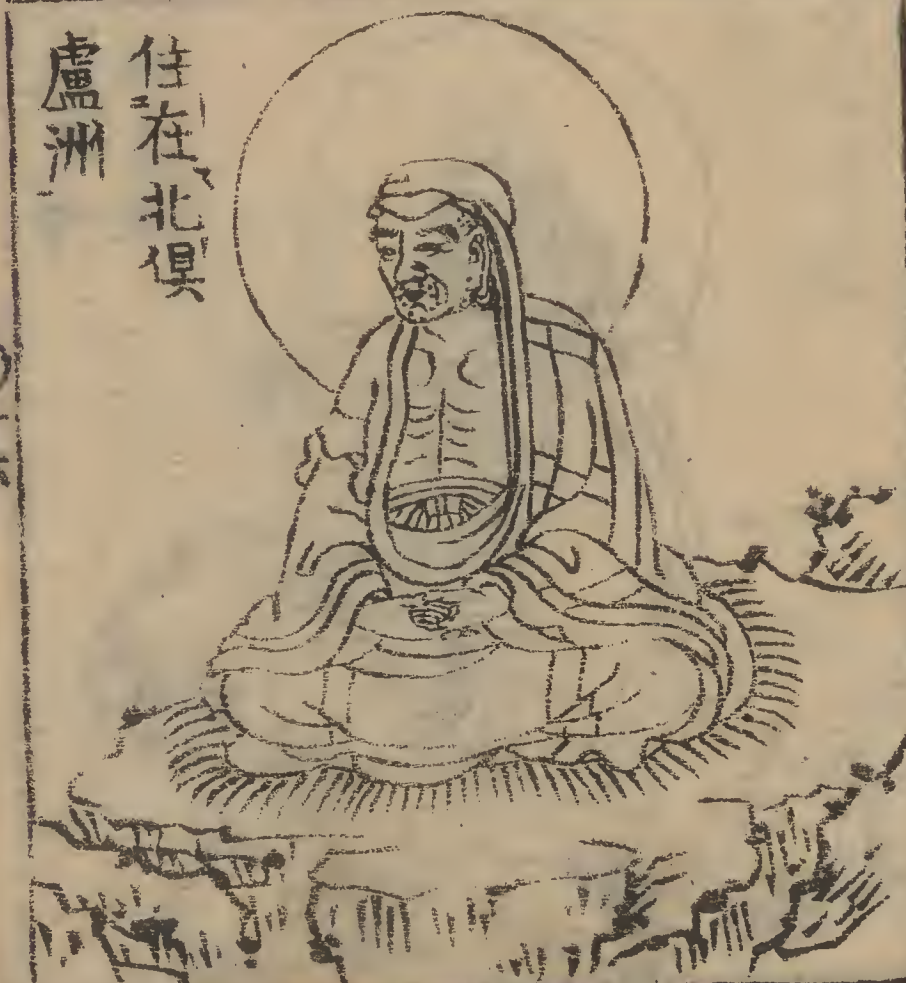 住在北俱
盧洲